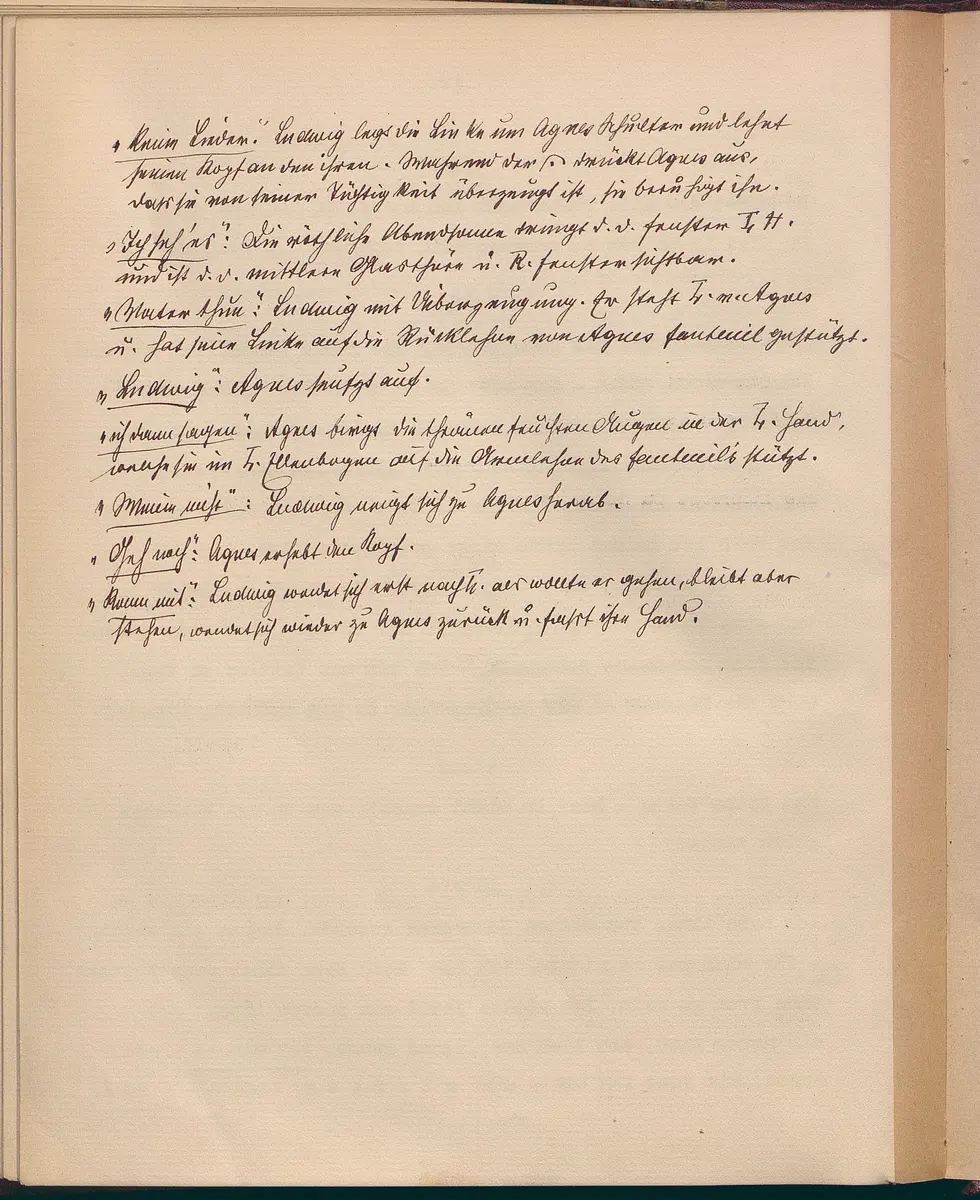 "keine Lieder": Ludwig legt die Linke um Agnes Schulter und lehnt
seinen Kopf an den ihren. Während der drückt Agnes aus,
dass sie von seiner Tüchtigkeit überzeugt ist, sie beruhigt ihn.
"Ich seh' es": Die röthliche Abendsonne dringt d. d. Fenster
und ist d. d. mittlere Glasthüre u. R. Fenster sichtbar.
"Vater thun": Ludwig mit Überzeugung. Er steht L. v. Agnes
u. hat seine Linke auf die Rücklehne von Agnes Fauteuil gestützt.
"Ludwig": Agnes seufzt auf.
"ich dann sagen": Agnes birgt die thränenfeuchten Augen in der L. Hand,
welche sie im L. Ellenbogen auf die Armlehne des Fauteuil's stützt.
"Weine nicht": Ludwig neigt sich zu Agnes herab.
"Geh nach": Agnes erhebt den Kopf.
"Komm mit": Ludwig wendet sich erst nach L. als wollte er gehen, bleibt aber
stehen, wendet sich wieder zu Agnes zurück u. fasst ihre Hand.